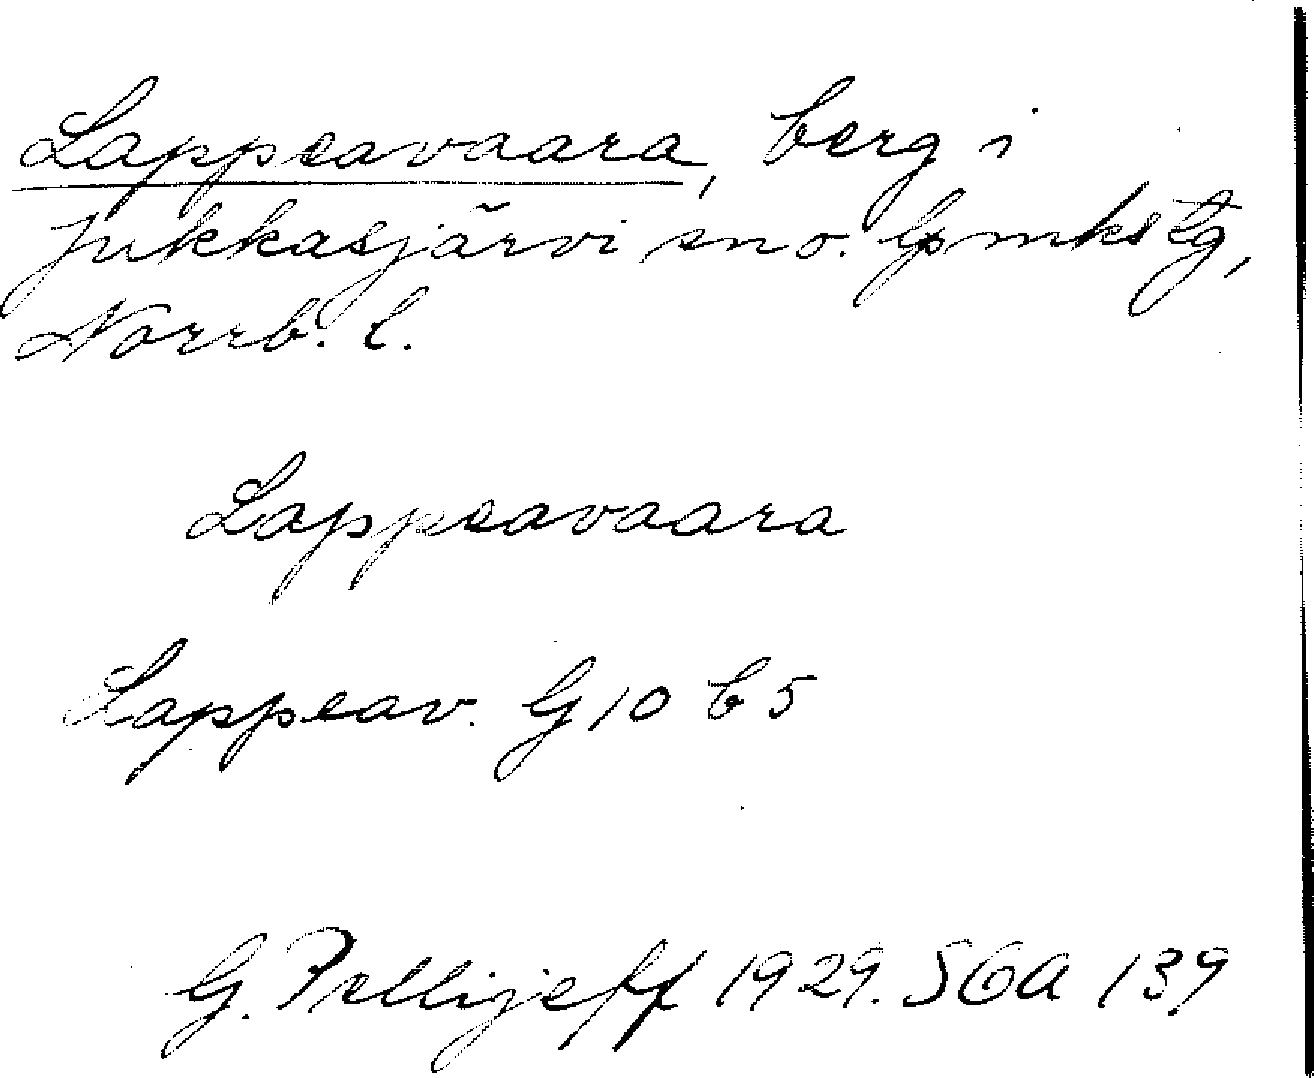 Lappeavaara, berg i
Jukkasjärvi sn o.
Norrb. l.
Lappeavaara
Lappeav. G 10 b 5
G. Pellijeff 1929. SGA 139